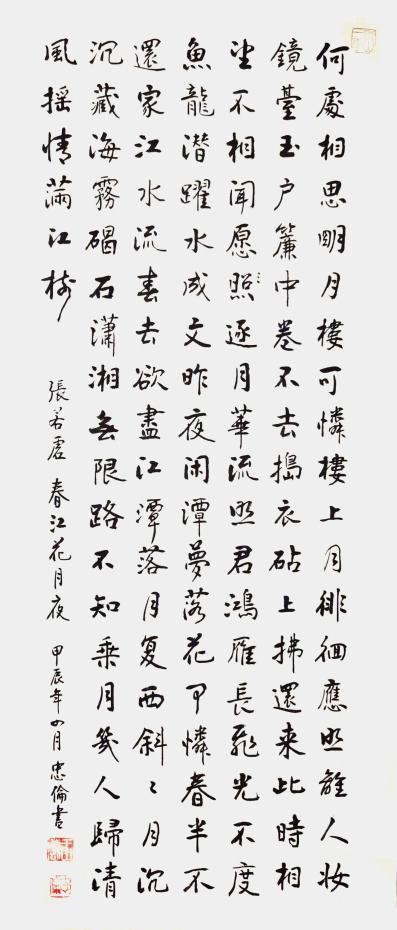 何處相思明月樓可憐樓上月徘徊應照離人妝
鏡臺玉户簾中卷不去搗衣砧上拂還来此時相
望不相聞愿照逐月華流照君鴻雁長飛光不度
魚龍潛躍水成文昨夜闲潭夢落花可憐春半不
還家江水流春去欲盡江潭落月复西斜〻月沉
沉藏海霧碣石瀟湘無限路不知乘月幾人歸清
風摇情滿江樹 張若虚 春江花月夜 甲辰年四月忠倫書